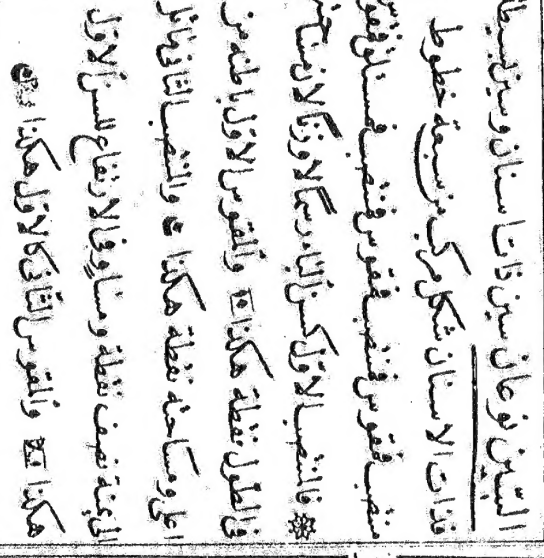 السّين نوعان سين ذات اسنان وسين بسيطة
فذات الاسنان شكل مركب من سبعة خطوط
منتصب فقوس فمنتصب فقوس فمنتصب فمستلق فقوس
فالمنتصب الاول كسن الباء رسما لا وزنا لان مساحته
في الطول نقطة هكذا والقوس الاول باطنه من
اعلى ومساحته نقطة هكذا والمنتصب الثاني مائل
الى يمنة نصف نقطة ومساوٍ في الارتفاع للسن الاول
هكذا والقوس الثاني كالاول هكذا